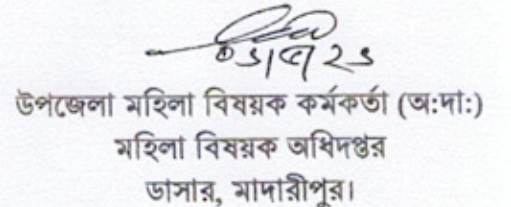 উপজেলা মহিলা বিষয়ক কর্মকর্তা (অ:দা:)
মহিলা বিষয়ক অধিদপ্তর
ডাসার, মাদারীপুর।